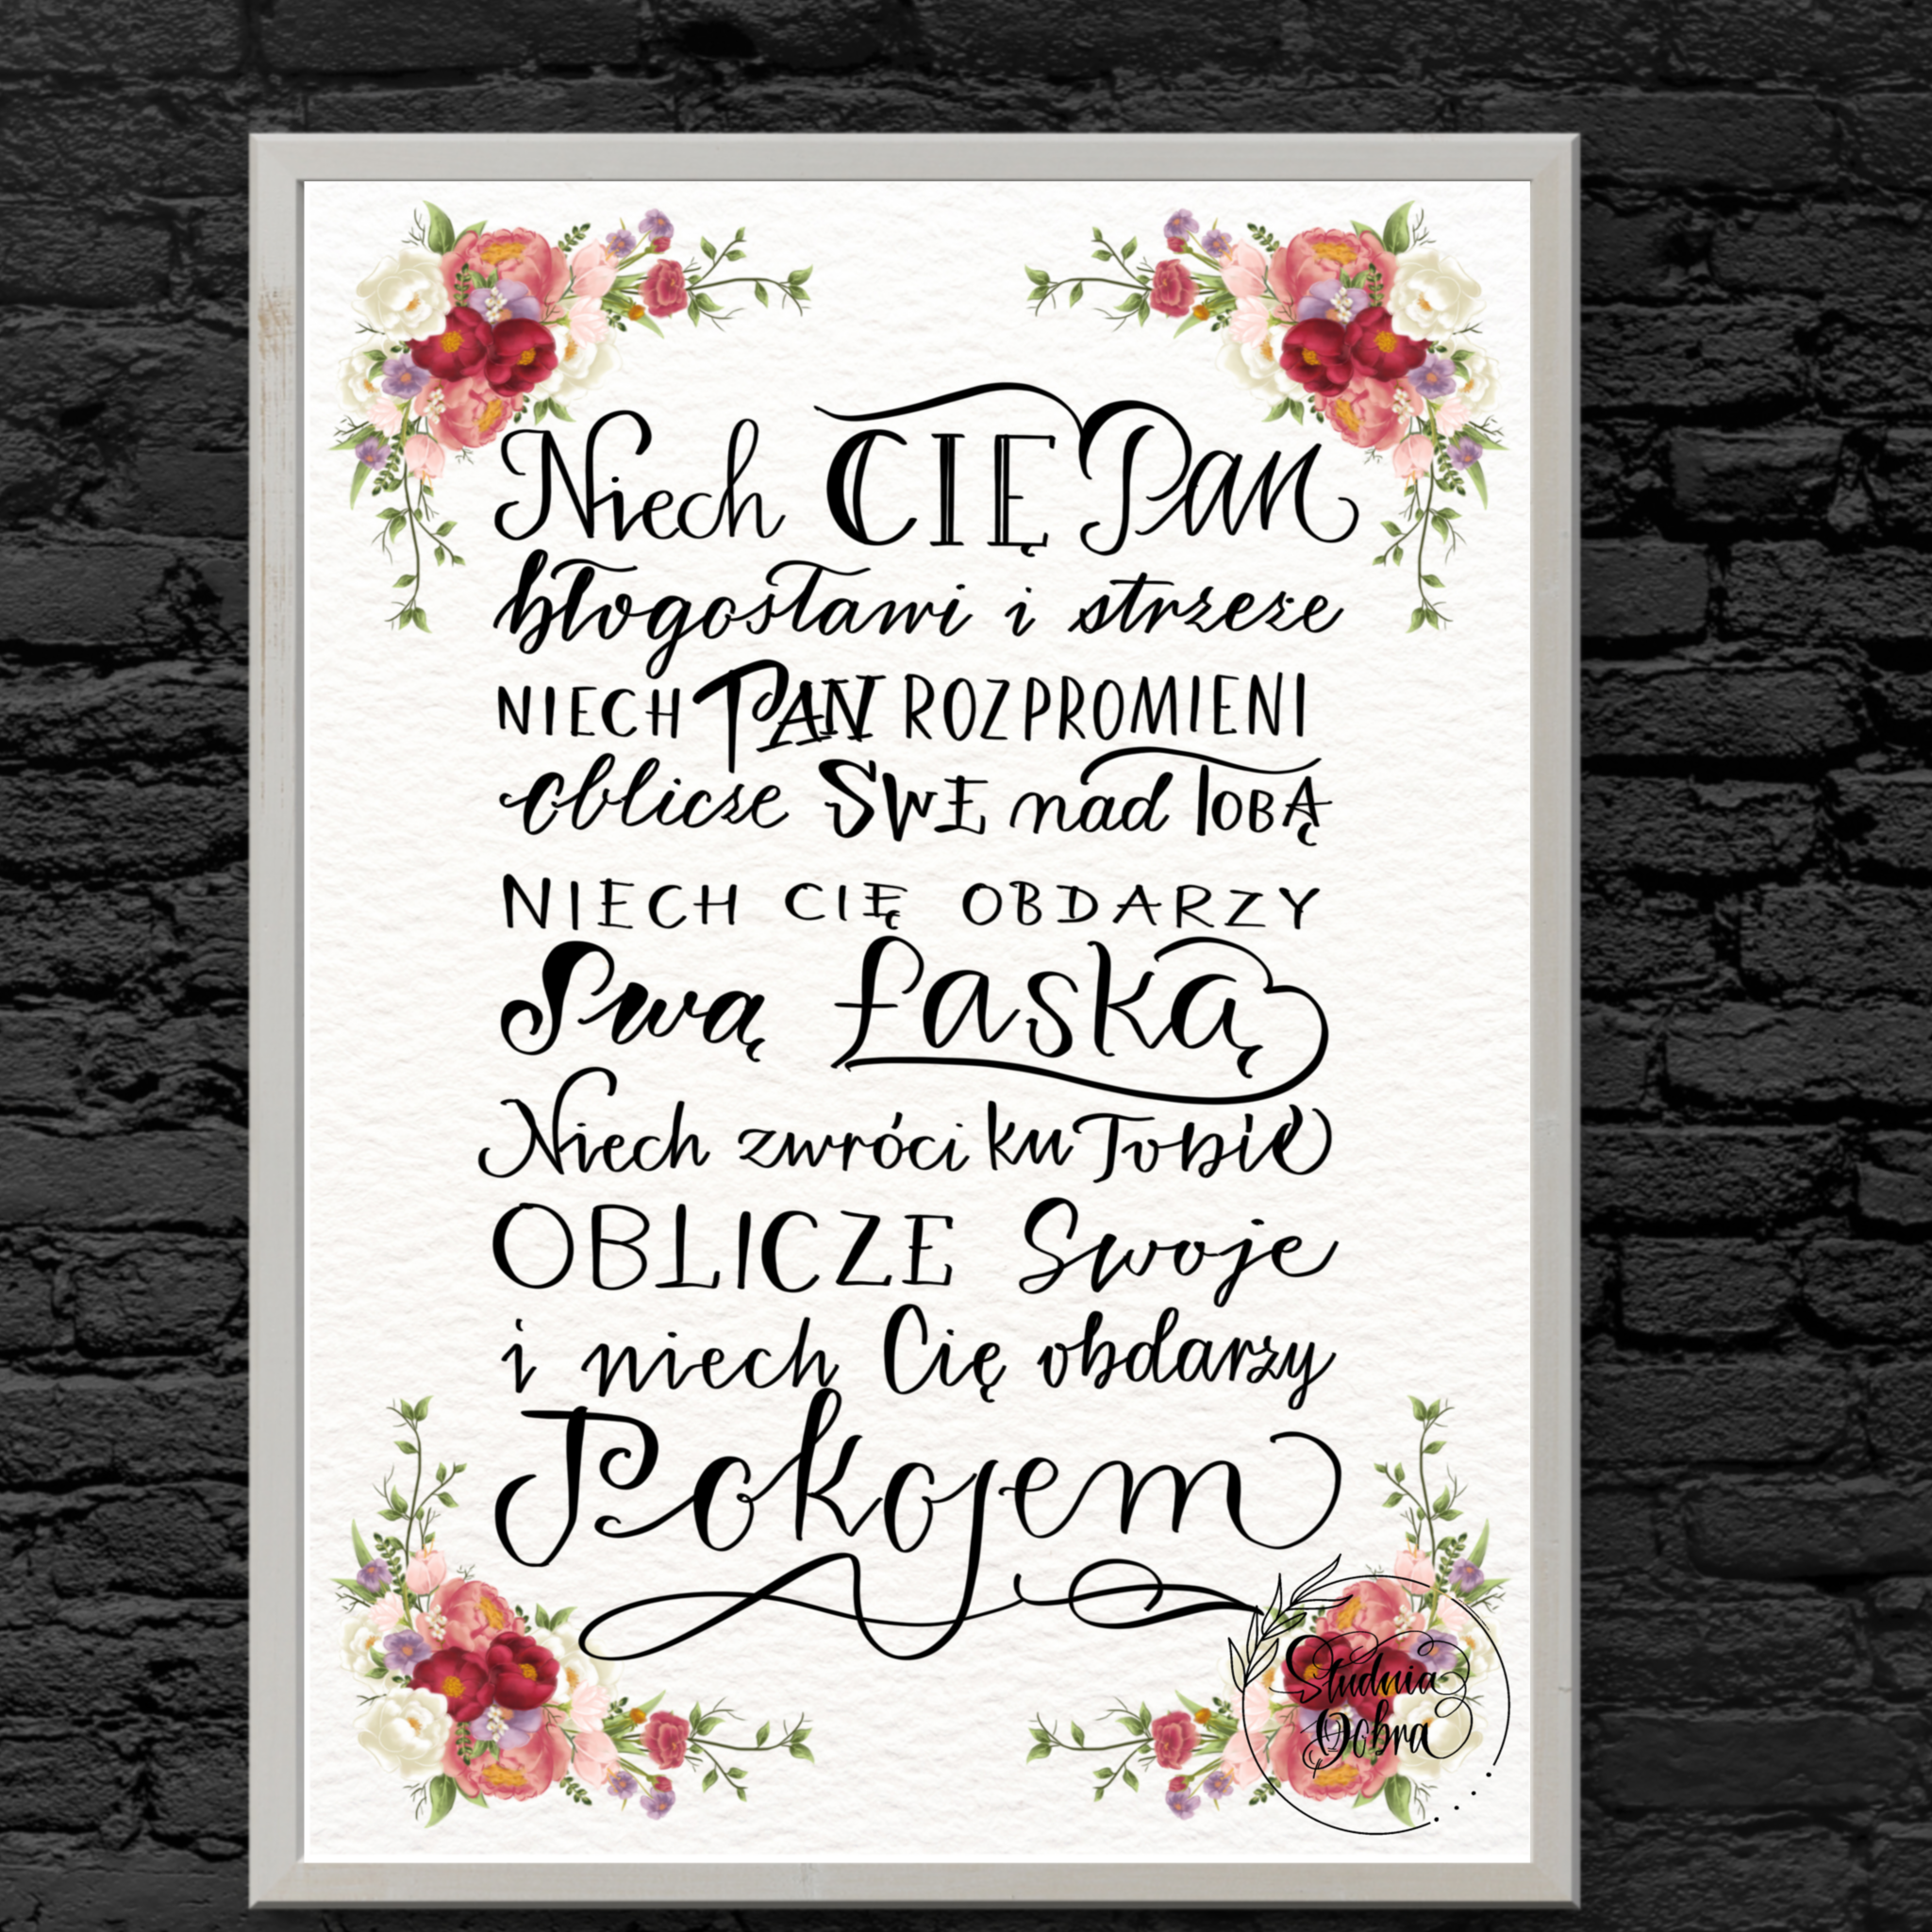 Niech CIĘ Pan
błogosławi i strzeże
NIECH PAN ROZPROMIENI
oblicze SWE nad TOBĄ
NIECH CIĘ OBDARZY
Swą Łaską
Niech zwróci ku Tobie
OBLICZE Swoje
i niech Cię obdarzy
Pokojem
Studnia
Dobra